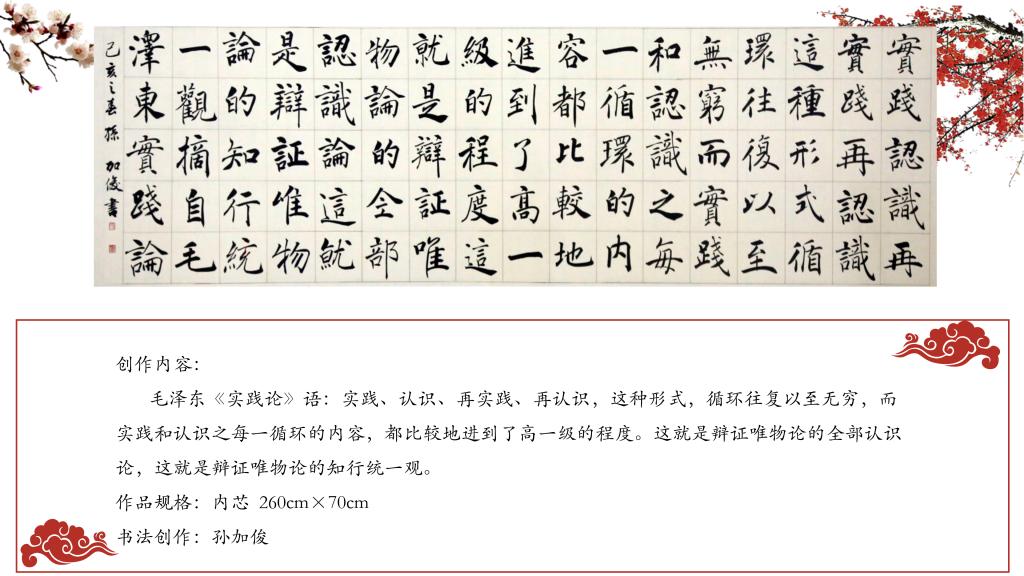 實踐認識再
實踐再認識
這種形式循
環往復以至
無窮而實踐
和認識之每
一循環的内
容都比較地
進到了高一
級的程度這
就是辯証唯
物論的全部
認識論這就
是辯証唯物
論的知行統
一觀摘自毛
澤東實踐論
己亥之春 孫加俊書
创作内容：
毛泽东《实践论》语：实践、认识、再实践、再认识，这种形式，循环往复以至无穷，而
实践和认识之每一循环的内容，都比较地进到了高一级的程度。这就是辩证唯物论的全部认识
论，这就是辩证唯物论的知行统一观。
作品规格：内芯 260cm×70cm
书法创作：孙加俊